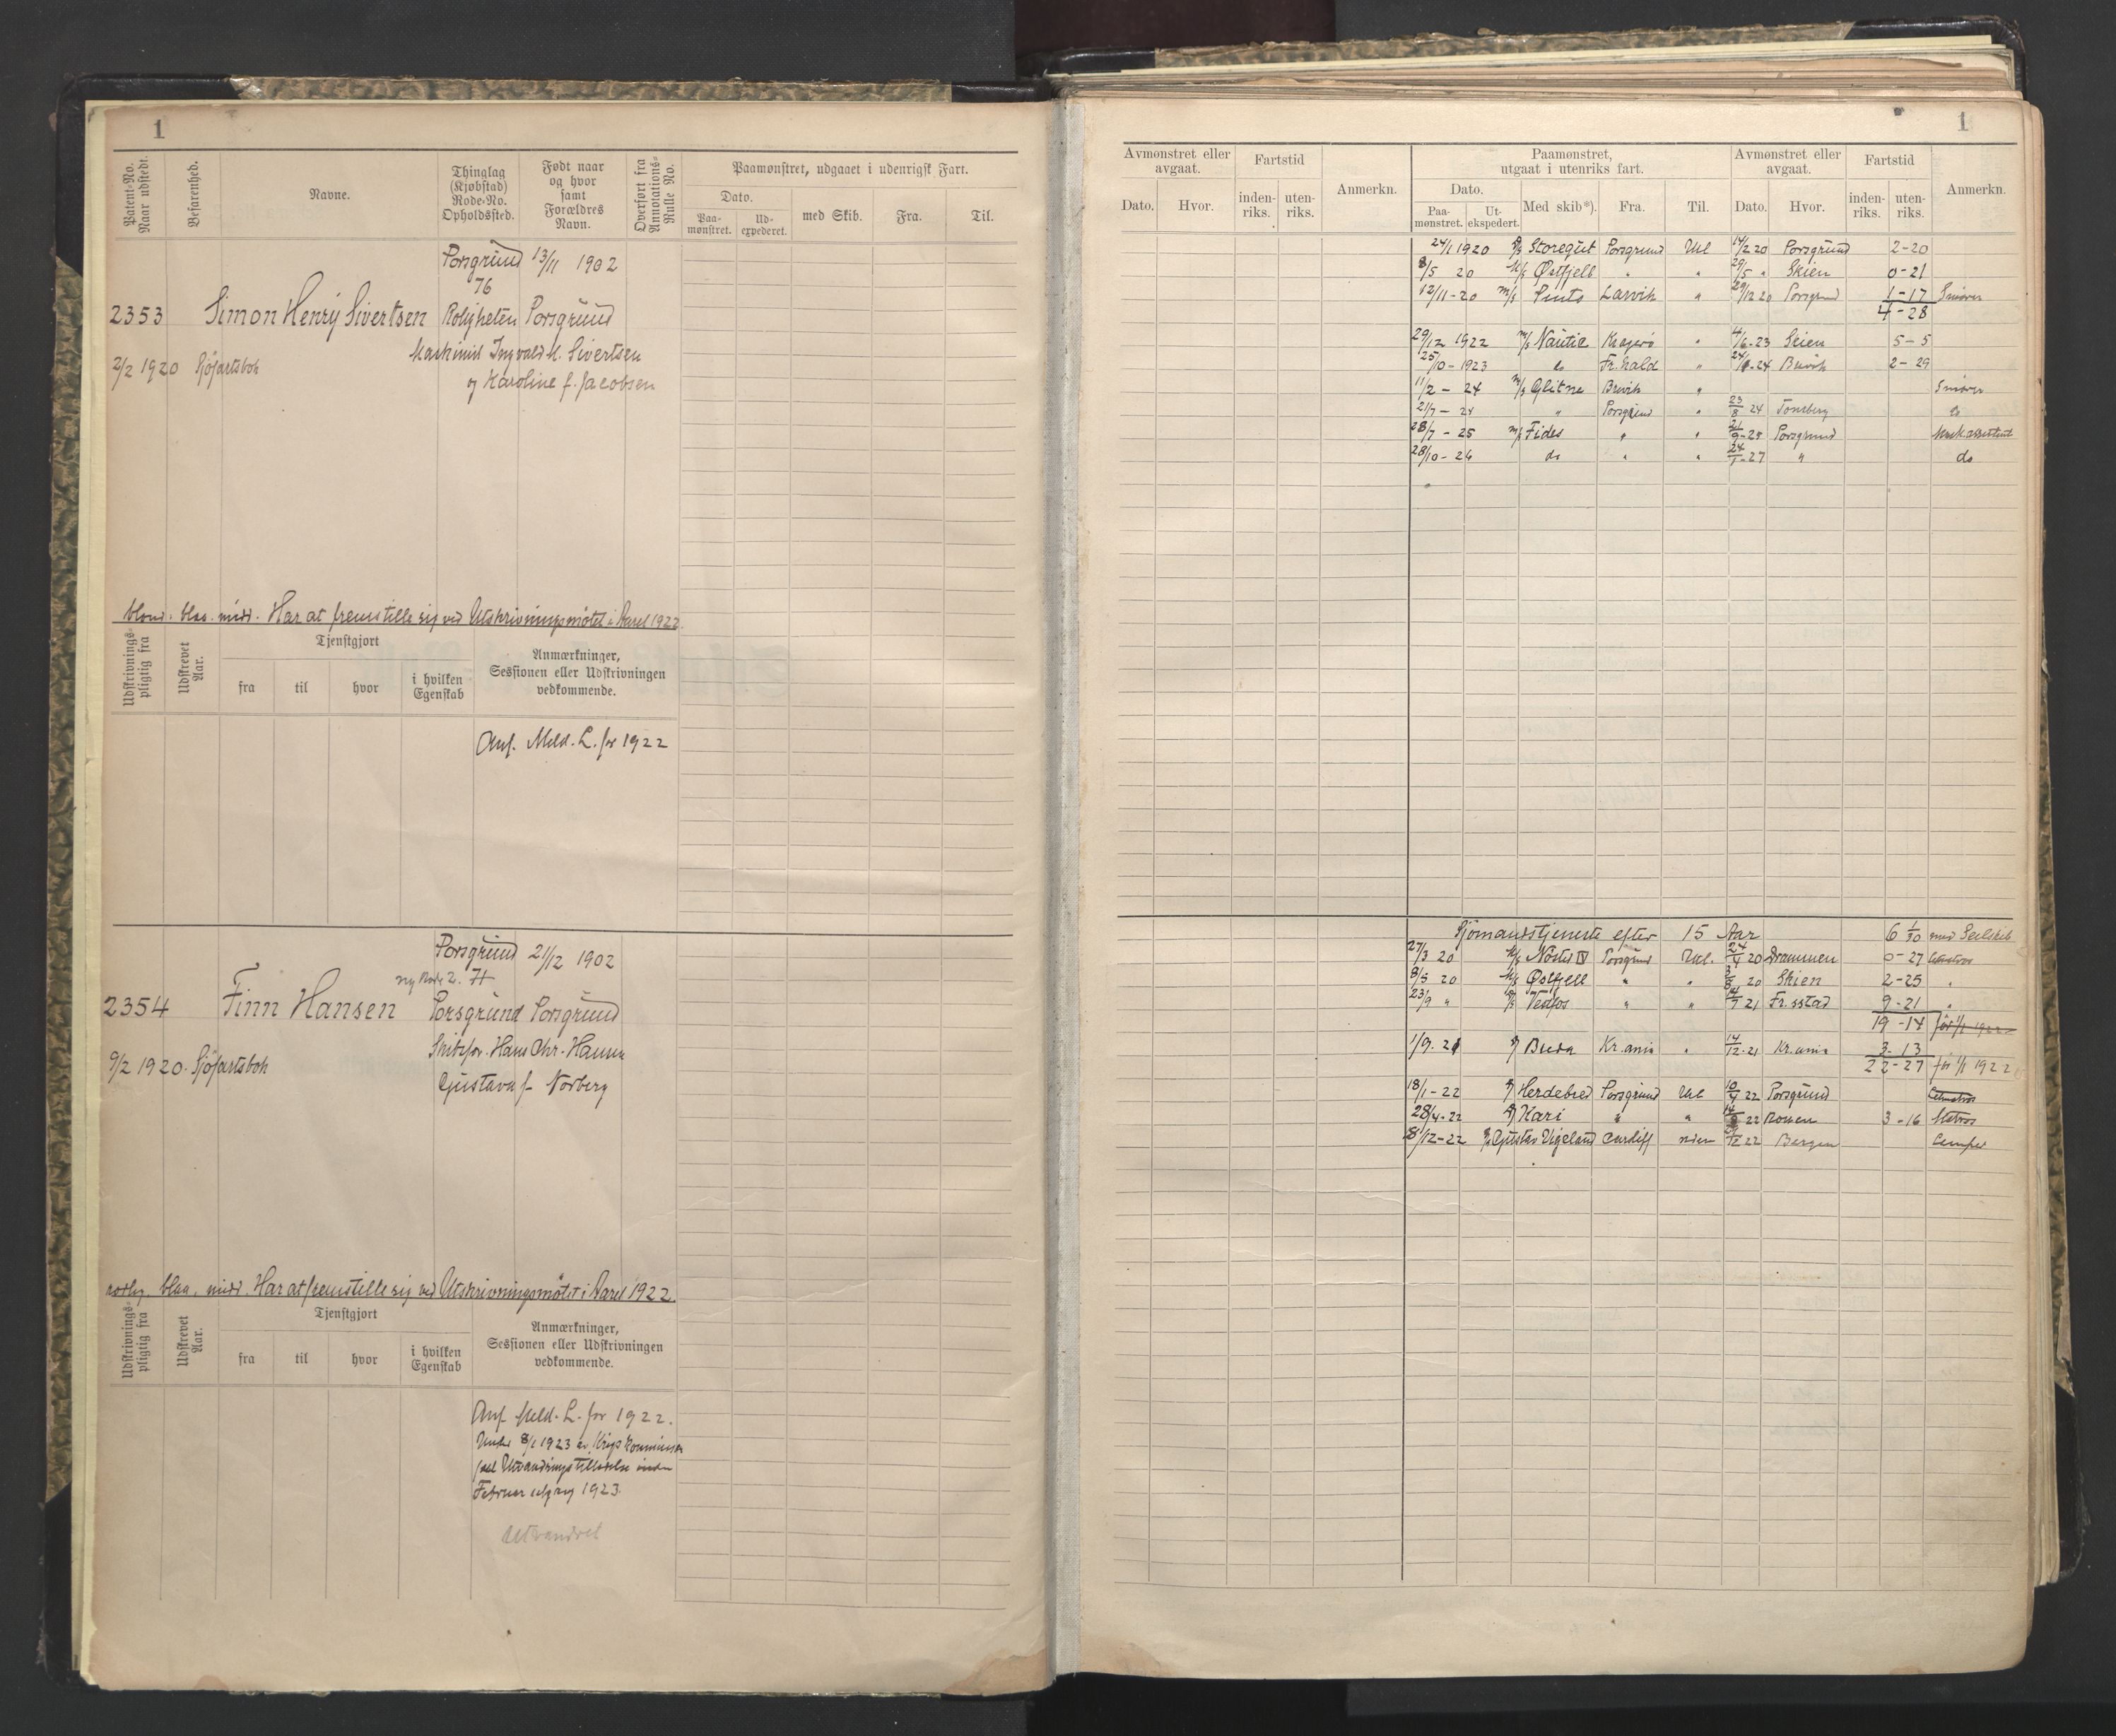 1
Patent-No. Naar udstedt.
Befarenhed.
Navne.
Thinglag (Kjøbstad) Rode-No. Opholdssted.
Født naar og hvor samt Forældres Navn.
Overført fra Annotations-Rulle No.
Paamønstret, udgaaet i udenrigsk Fart.
Dato.
Paa-mønstret.
Ud-expederet.
med Skib.
Fra.
Til.
Porsgrund 13/11 1902
76
2353 Simon Henry Sivertsen Roligheten Porsgrund
2/2 1920 Sjöfartsbok Maskinist Ingvald M. Sivertsen
og Karoline f. Jacobsen
blond. blaa. midd. Har at fremstille sig ved Utskrivningsmötet i Aaret 1922.
Udskrivnings-pligtig fra
Udskrevet Aar.
Tjenstgjort
fra
til
hvor
i hvilken Egenskab
Anmærkninger, Sessionen eller Udskrivningen vedkommende.
Anf. Meld. L. for 1922
Porsgrund 21/12 1902
ny Rode 2. 71
2354 Finn Hansen Porsgrund Porsgrund
9/2 1920. Sjöfartsbok Hans Chr. Hansen
Gustava f. Norberg
blaa, midd. Har at fremstille sig ved Utskrivningsmötet i Aaret 1922.
Udskrivnings-pligtig fra
Udskrevet Aar.
Tjenstgjort
fra
til
hvor
i hvilken Egenskab
Anmærkninger, Sessionen eller Udskrivningen vedkommende.
Anf. Meld. L. for 1922.
8/1 1923 av
Utvandringstilladelse inden
Februar utgang 1923.
Utvandret
1
Avmønstret eller avgaat.
Dato.
Hvor.
Fartstid
inden-riks.
uten-riks.
Anmerkn.
Paamønstret, utgaat i utenriks fart.
Dato.
Paa-mønstret.
Ut-ekspedert.
Med skib*).
Fra.
Til.
Avmønstret eller avgaat.
Dato.
Hvor.
Fartstid
inden-riks.
uten-riks.
Anmerkn.
24/1 1920 Storegut Porsgrund Utl 14/2 20 Porsgrund 2-20
8/5 20 Østfjell " " 29/5 " Skien 0-21
12/11-20 m/s Larvik " 29/12 20 Porsgrund 1-17 Smører
4-28
29/12 1922 m/s Nautic Kragerø " 4/6-23 Skien 5-5
25/10-1923 do Fr.hald " -24 Brevik 2-29
11/2-24 m/s Glitne Brevik " Smører
21/7-24 " Porsgrund " 23/8 24 Tønsberg do
28/7-25 m/s Fides " " -25 Porsgrund Maskassistent
28/10-26 do " " 24/1-27 " do
Sjömandstjeneste efter 15 Aar 6 1/30 med Seilskib
27/3 20 Porsgrund Utl. 24/4 20 Drammen 0-27
8/5 20 Østfjell " " 20 Skien 2-25 "
23/9 " " " 21 Fr.sstad 9-21 "
19-14 før 1/1 1922
1/9.21 Breda Kr.ania " 14/12-21 Kr.ania 3-13
22-27 før 1/1 1922
18/1-22 Herdebred Porsgrund Utl 10/4 22 Porsgrund
28/4-22 Kari " " 22 Rouen 3-16 Matros
8/12-22 Gustav Vigeland Cardiff 22 Bergen Lemper